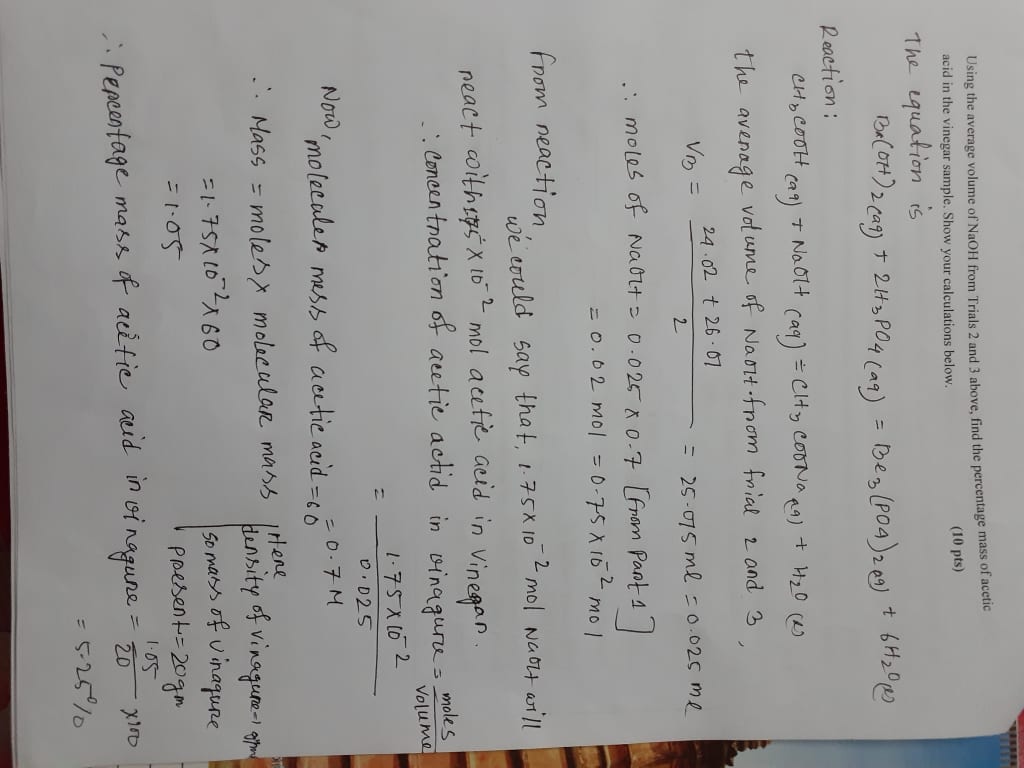 Using the average volume of NaOH from Trials 2 and 3 above, find the percentage mass of acetic
acid in the vinegar sample. Show your calculations below. (10 pts)
The equation is
Be(OH)2(aq) + 2H3PO4(aq) = Be3(PO4)2(aq) + 6H2O(l)
Reaction:
CH3COOH(aq) + NaOH(aq) = CH3COONa(aq) + H2O(l)
The average volume of NaOH from trial 2 and 3,
VB = 24.02 + 26.07 / 2 = 25.075 ml = 0.025 ml
∴ moles of NaOH = 0.025 x 0.7 [From Part 1]
= 0.02 mol = 0.75 x 10^-2 mol
From reaction,
we could say that, 1.75 x 10^-2 mol NaOH will
react with 1.75 x 10^-2 mol acetic acid in vinegar.
∴ concentration of acetic actid in vinagure = moles / volume
= 1.75 x 10^-2 / 0.025
= 0.7 M
Now, moleculer mess of acetic acid = 60
∴ Mass = moles x molecular mass
= 1.75 x 10^-2 x 60
= 1.05
Here
density of vinagure = 1
so mass of vinagure
present = 20 gm
∴ Percentage mass of acetic acid in vinagure = 1.05 / 20 x 100
= 5.25%